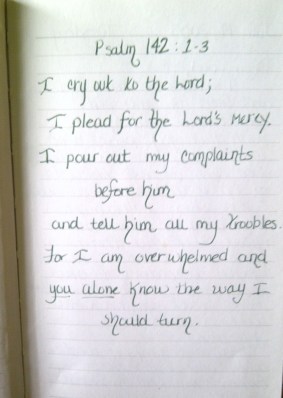 Psalm 142 : 1-3
I cry out to the Lord;
I plead for the Lord's mercy.
I pour out my complaints
before him
and tell him all my troobles.
For I am overwhelmed and
you alone know the way I
should turn.